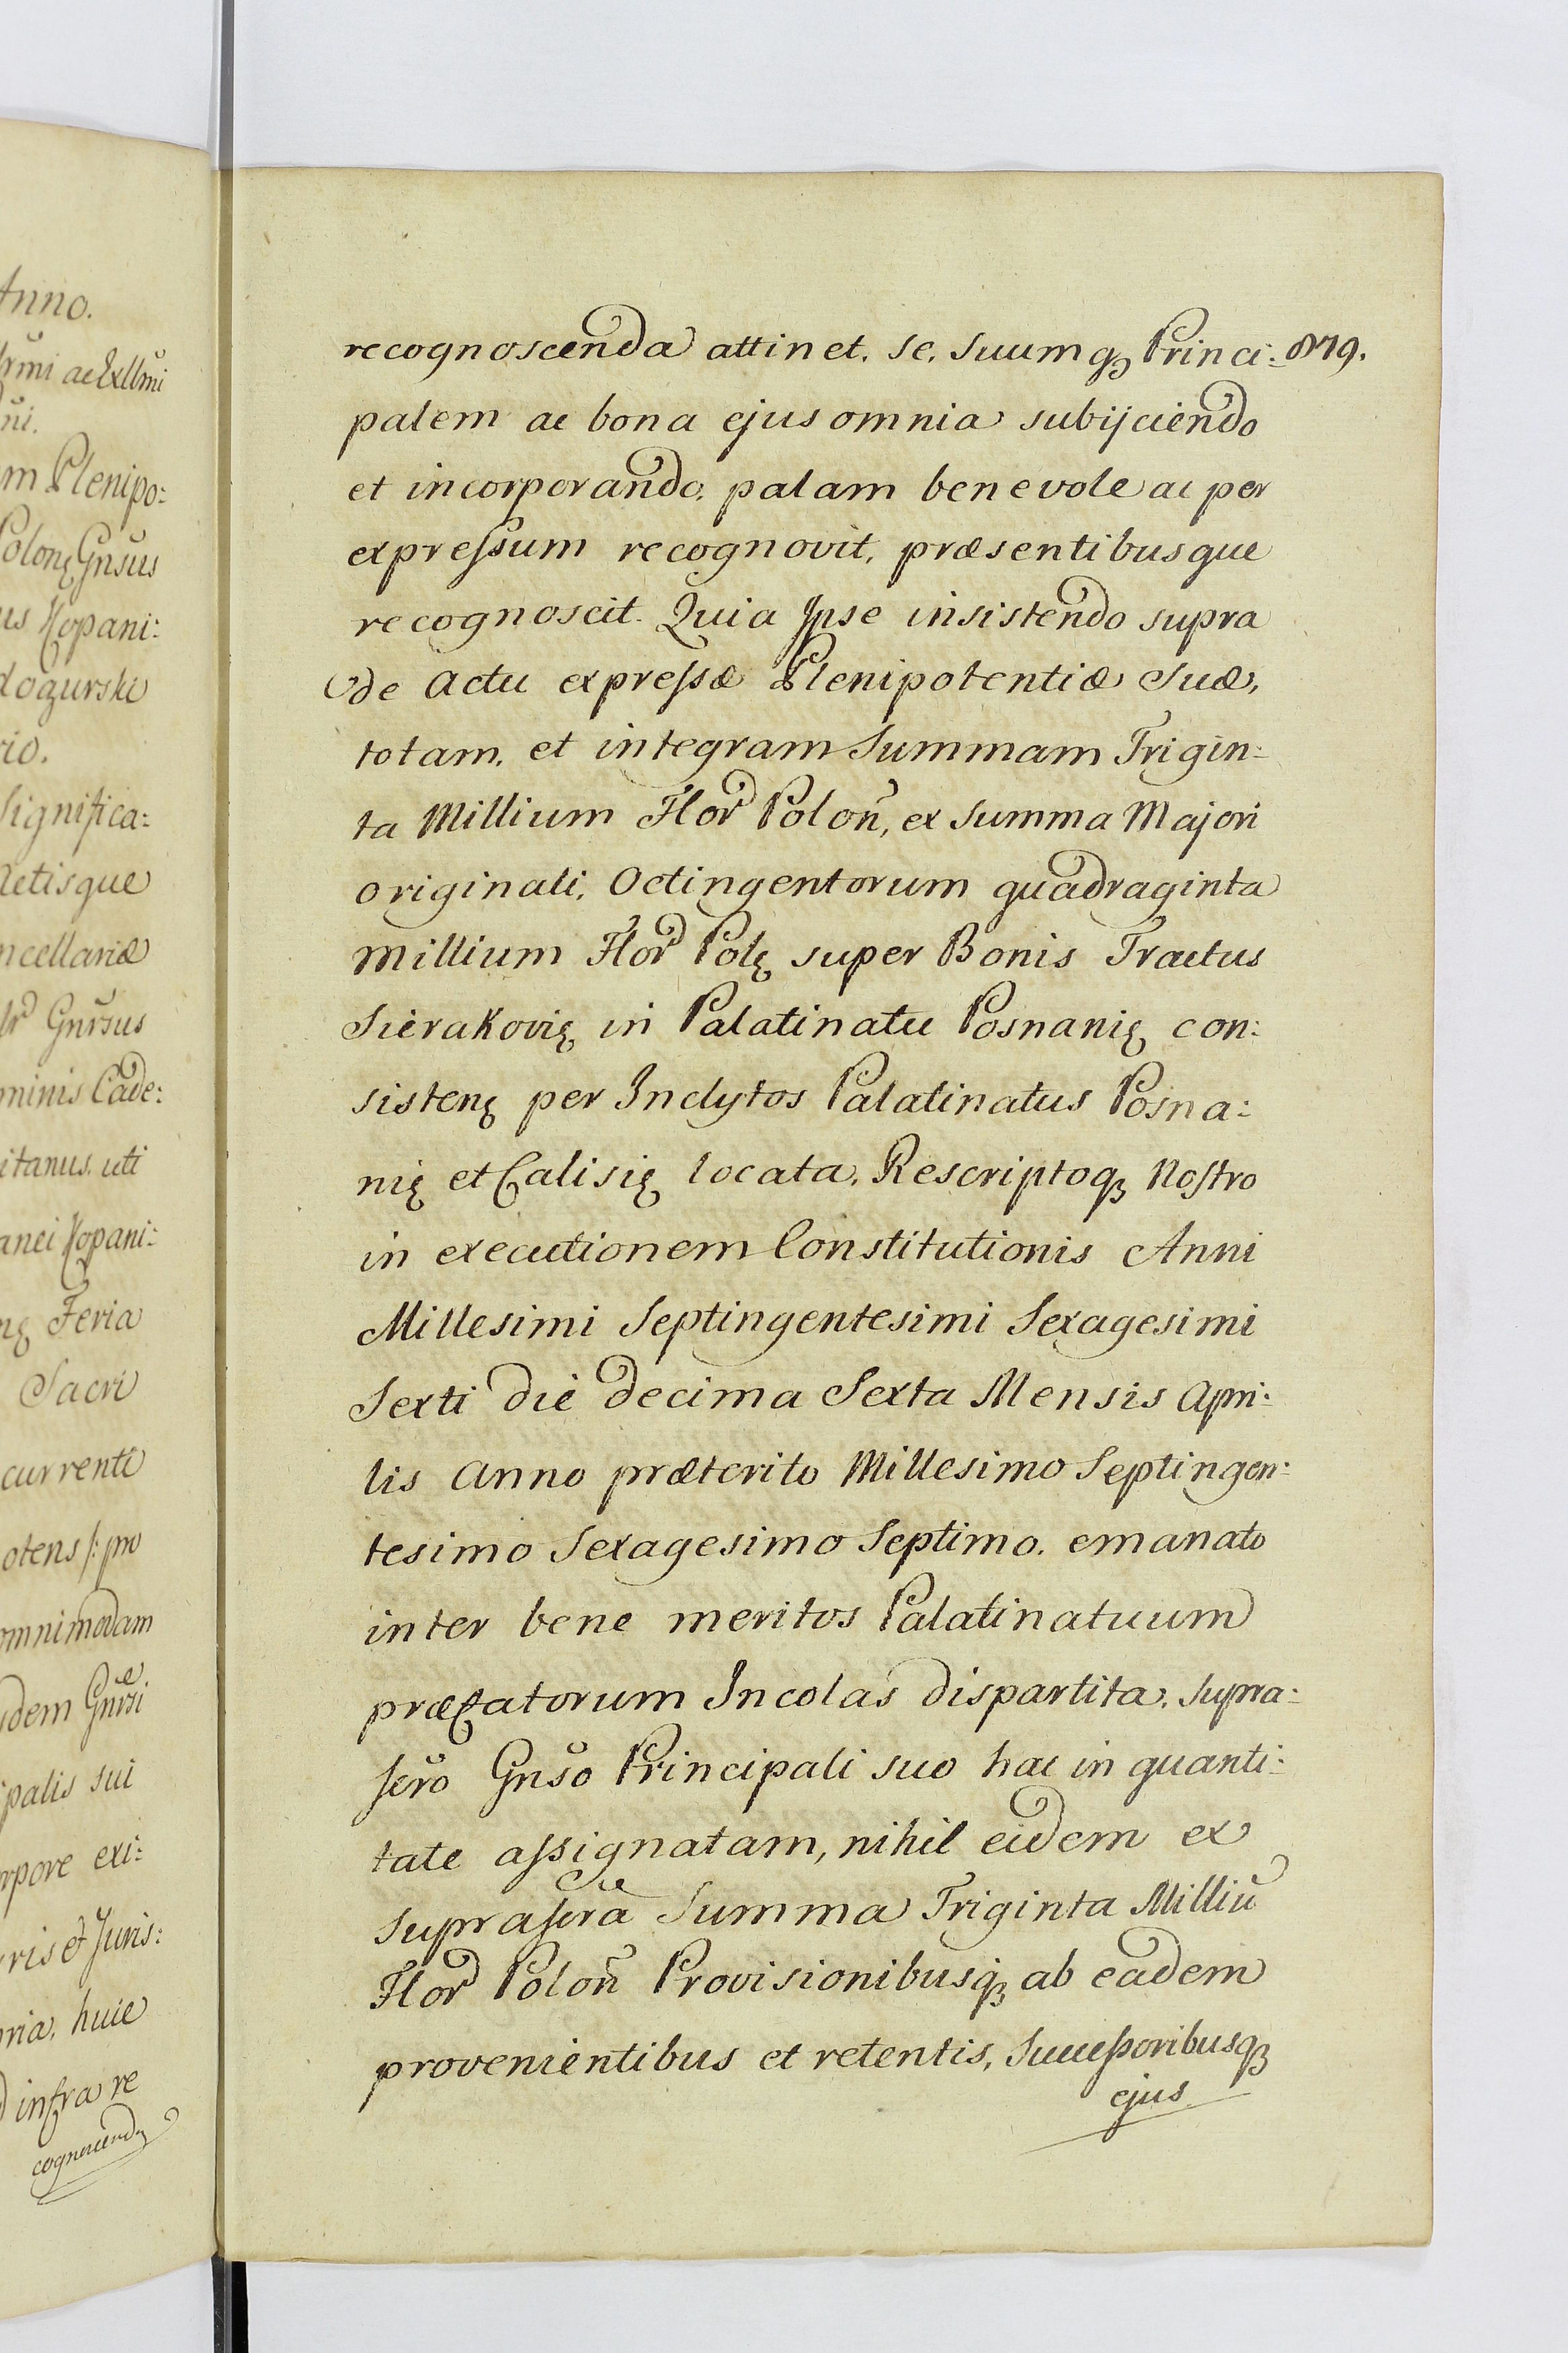 Anno.
ac Exllmi
Plenipo:
Polonę Gnsus
Kopani:
significa:
Actisque
Gnrsus
minis Cade:
uti
Kopani:
Feria
Sacri
currenti
/: pro
omnimodam
Gnrsi
sui
exi:
et Juris:
huic
infra re
cognoscenda
recognoscenda attinet, se, suumqꝫ Princi: 879.
palem ac bona ejus omnia subijciendo
et incorporando, palam benevole ac per
expreſsum recognovit, præsentibusque
recognoscit. Quia Ipse insistendo supra
de actu expreſsæ Plenipotentiæ suæ,
totam, et integram Summam Trigin:
ta Millium Flor Polon̄, ex Summa Majori
originali, Octingentorum quadraginta
Millium Flor Polę super Bonis Tractus
Sierakovię in Palatinatu Posnanię con:
sistenę per Inclytos Palatinatus Posna:
nię et Calisię locata, Rescriptoqꝫ Noſtro
in executionem Constitutionis Anni
Millesimi Septingentesimi Sexagesimi
Sexti die decima Sexta Mensis Apri:
lis anno præterito Millesimo Septingen:
tesimo Sexagesimo Septimo, emanato
inter bene meritos Palatinatuum
præfatorum Incolas dispartita, supra:
ſcr̄o Gnso Principali suo hac in quanti:
tate aſsignatam, nihil eidem ex
supraſcr̄a Summa Triginta Milliū
Flor Polon̄ Provisionibusqꝫ ab eadem
provenientibus et retentis, Succeſsoribusqꝫ
ejus